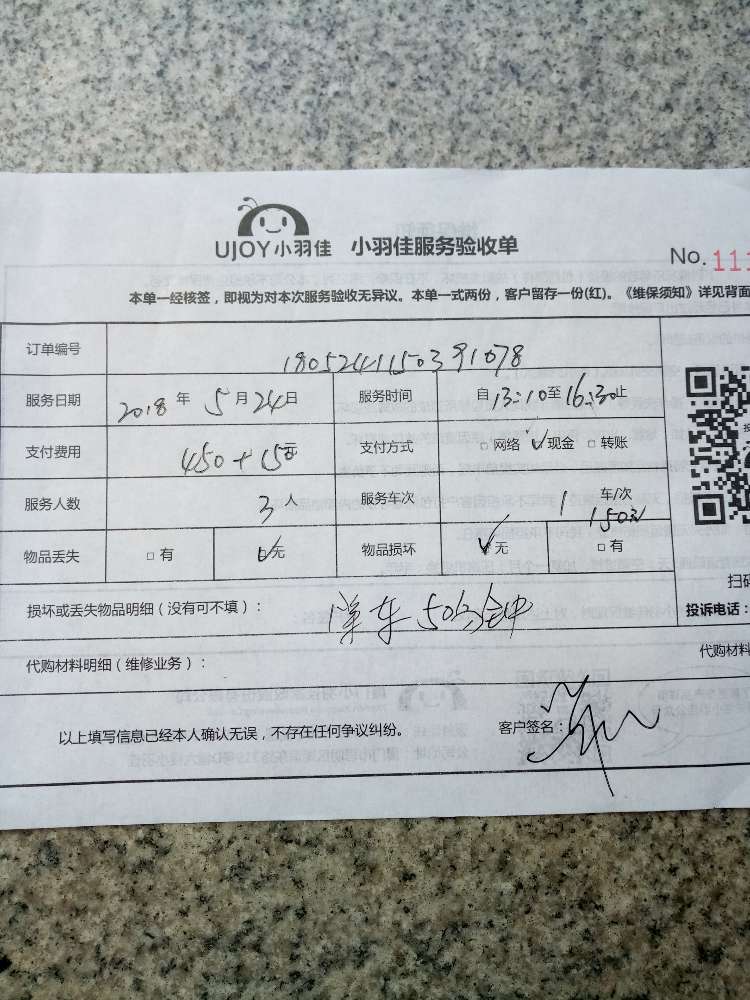 UJOY小羽佳 小羽佳服务验收单
No. 111
本单一经核签，即视为对本次服务验收无异议。本单一式两份，客户留存一份(红)。《维保须知》详见背面
订单编号 1805241150391078
服务日期 2018 年 5 月 24 日 服务时间 自 13:10 至 16:30 止
支付费用 450+15元 支付方式 □ 网络 ✓ 现金 □ 转账
服务人数 3 人 服务车次 1 车/次
150元
物品丢失 □ 有 ✓ 无 物品损坏 ✓ 无 □ 有
扫码
损坏或丢失物品明细（没有可不填）： 等车50分钟
投诉电话：
代购材料明细（维修业务）：
代购材料
以上填写信息已经本人确认无误，不存在任何争议纠纷。 客户签名：